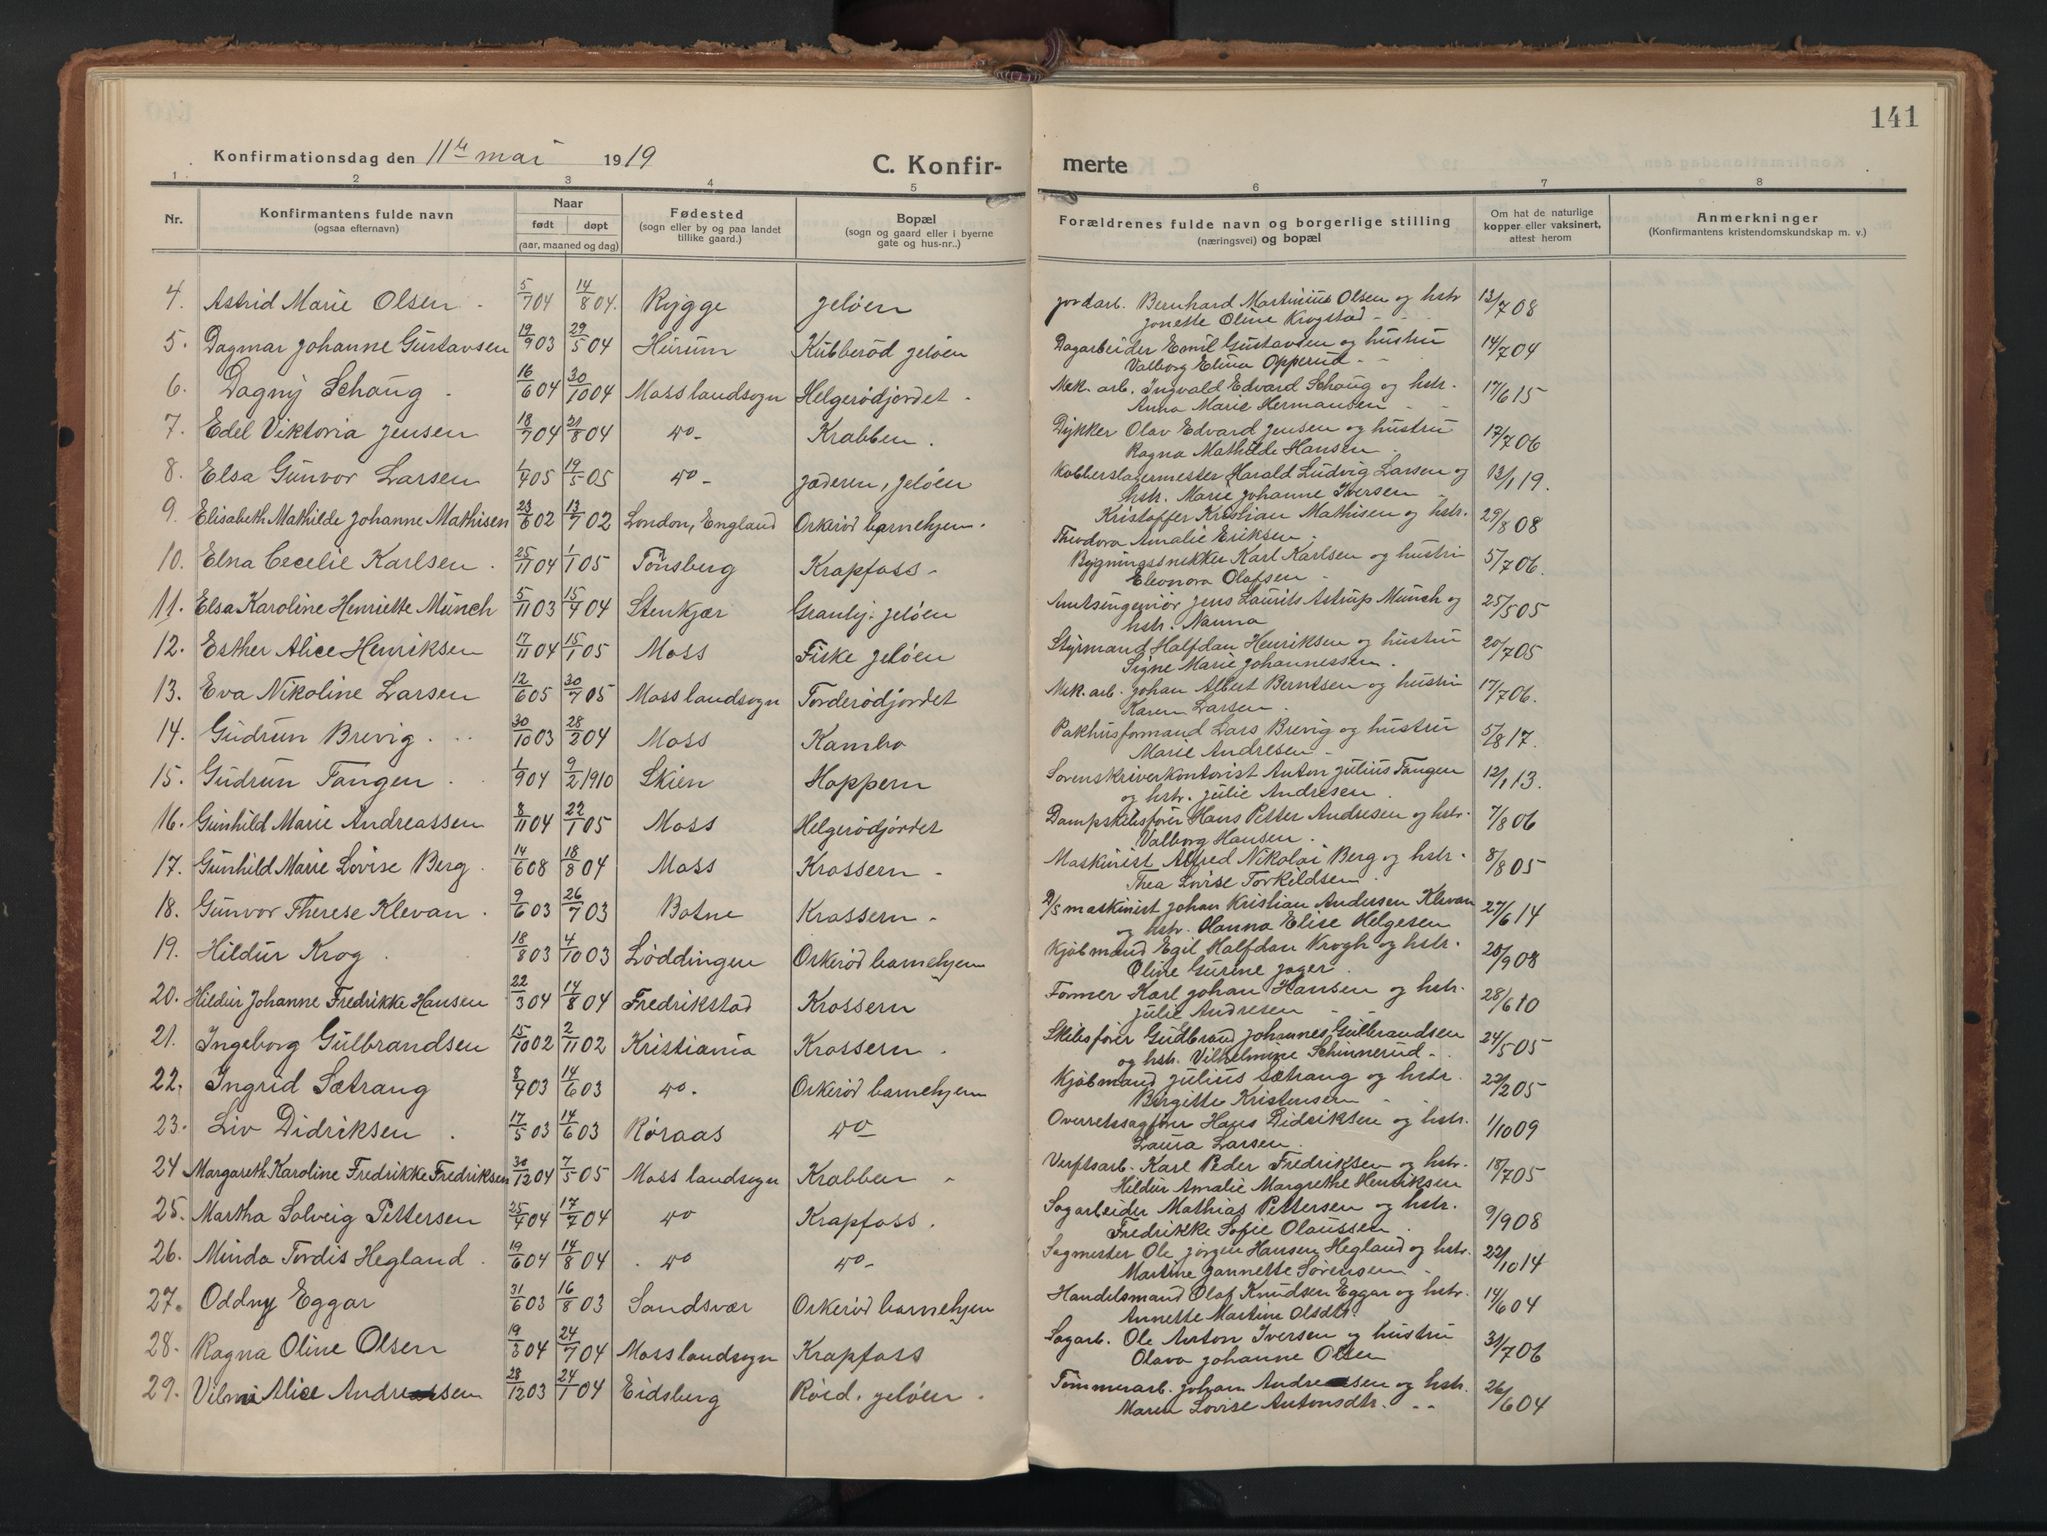 141
Konfirmationsdag den 11te mai 1919
C. Konfir- merte
1 2 3 4 5 6 7 8
Nr. Konfirmantens fulde navn (ogsaa efternavn) Naar født døpt (aar, maaned og dag) Fødested (sogn eller by og paa landet tillike gaard.) Bopæl (sogn og gaard eller i byerne gate og hus-nr..) Forældrenes fulde navn og borgerlige stilling (næringsvei) og bopæl Om hat de naturlige kopper eller vaksinert, attest herom Anmerkninger (Konfirmantens kristendomskundskap m. v.)
4. Astrid Marie Olsen. 5/7 04 14/8 04. Rygge Jeløen Jordarb. Bernhard Martinius Olsen og hstr 13/7 08
Jonette Oline Krogstad - -
5. Dagmar Johanne Gustavsen 19/9 03 29/5 04 Hurum Kubberød Jeløen Dagarbeider Emil Gustavsen og hustru 14/7 04
Valborg Elina Opperud - -
6. Dagny Schaug. 16/6 04 30/10 04 Moss landsogn Helgerødjordet - Mek. arb. Ingvald Edvard Schaug og hstr. 17/6 15
Anna Marie Hermansen - -
7. Edel Viktoria Jensen 18/7 04 21/8 04 do- Krabben. Dykker Olav Edvard Jensen og hustru 12/7 06
Ragna Mathilde Hansen.
8. Elsa Gunvor Larsen 1/4 05 19/5 05 do- Jæderen, Jeløen Kobberslagermester Harald Ludvig Larsen og 13/1 19.
hstr. Marie Johanne Iversen -
9. Elisabeth Mathilde Johanne Mathisen 23/6 02 13/7 02 London, England Orkerød barnehjem. Kristoffer Kristian Mathisen og hstr. 29/8 08
Theodora Amalie Eriksen.
10. Elna Cecelie Karlsen. 25/11 04 1/1 05 Tönsberg Krapfoss - Bygningssnekker Karl Karlsen og hustru 5/7 06.
Eleonora Olafsen -
11. Elsa Karoline Henriette Münch 5/11 03 15/4 04 Stenkjær Granly. Jeløen Amtsingeniør Jens Laurits Astrup Münch og 25/5 05
hstr. Nanna
12. Esther Alice Henriksen 17/11 04 15/1 05 Moss Fiske Jeløen Styrmand Halfdan Henriksen og hustru 20/7 05
Signe Marie Johannessen.
13. Eva Nikoline Larsen 12/6 05 30/7 05 Moss landsogn Torderødjordet Mek. arb. Johan Albert Berntsen og hustru 17/7 06.
Karen Larsen.
14. Gudrun Brevig. 30/10 03 28/2 04 Moss Kambo Pakhusformand Lars Brevig og hustru 5/8 17.
Marie Andresen -
15. Gudrun Tangen. 1/9 04 9/2 1910 Skien Hoppern Sorenskriverkontorist Anton Julius Tangen 12/1 13.
og hstr. Julie Andresen.
16. Gunhild Marie Andreassen 8/11 04 22/1 05 Moss Helgerødjordet Dampskibsfører Hans Petter Andresen og hstr. 7/8 06
Valborg Hansen.
17. Gunhild Marie Lovise Berg. 14/6 08 18/8 04 Moss Krossern - Maskinist Alfred Nikolai Berg og hstr. 8/8 05
Thea Lovise Torkildsen.
18. Gunvor Therese Klevan. 9/6 03 26/7 03 Botne Krossern - D/s maskinist Johan Kristian Andersen Klevan 27/6 14
og hstr. Hanna Elise Helgesen
19. Hildur Krog. 18/8 03 4/10 03 Løddingen Orkerød barnehjem Kjøbmand Egil Halfdan Krogh og hstr. 20/9 08
Oline Gurine Jager.
20. Hildur Johanne Fredrikke Hansen 22/3 04 14/8 04 Fredrikstad Krossern Former Karl Johan Hansen og hstr. 28/6 10
Julie Andresen -
21. Ingeborg Gulbrandsen 15/10 02 2/11 02 Kristiania Krossern. Skibsfører Gudbrand Johannes Gulbrandsen 24/5 05
og hstr. Vilhelmine Schinnerud -
22. Ingrid Sætrang 8/4 03 14/6 03 do. Orkerød barnehjem Kjøbmand Julius Sætrang og hstr. 22/2 05
Birgitte Kristensen -
23. Liv Didriksen. 17/5 03 14/6 03 Røraas do Overretssagfører Hans Didriksen og hstr. 1/10 09
Laura Larsen.
24 Margareth Karoline Fredrikke Fredriksen 30/12 04 7/5 05 Moss landsogn Krabben - Verftsarb. Karl Peder Fredriksen og hstr. 18/7 05
Hildur Amalie Margrethe Henriksen
25. Martha Solveig Pettersen 25/4 04 17/7 04 do Krapfoss. Sagarbeider Mathias Pettersen og hstr. 9/9 08
Fredrikke Sofie Olaussen.
26. Minda Tordis Hegland. 19/6 04 14/8 04 do do- Sagmester Ole Jørgen Hansen Hegland og hstr. 22/10 14
Martine Jannette Sørensen -
27. Oddny Eggar 31/6 03 16/8 03 Sandsvær Orkerød barnehjem Handelsmand Olaf Knudsen Eggar og hstr. 14/6 04
Annette Martine Olsdtr.
28. Ragna Oline Olsen 19/3 04 24/7 04 Moss landsogn Krapfoss Sagarb. Ole Anton Iversen og hustru 31/7 06
Olava Johanne Olsen
29. Alice Andreassen 28/12 03 24/1 04 Eidsberg Røed. Jeløen. Tømmerarb. Johan Andreassen og hstr. 26/6 04
Maren Lovise Antonsdtr. - -